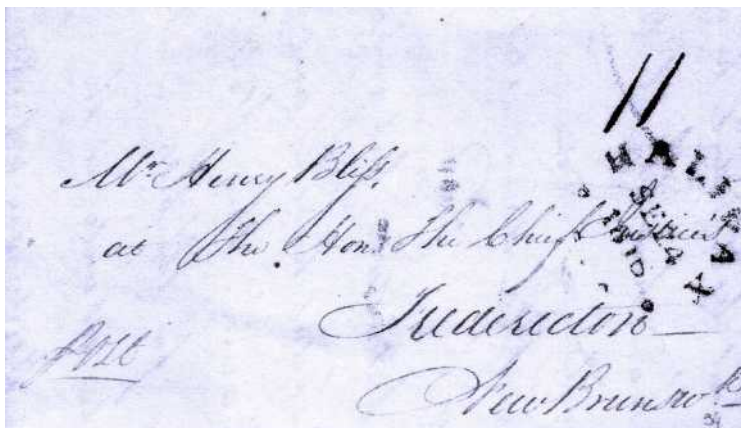 11
HALIFAX
SE 24
1810
Mr Henry Bliss.
at The Hon. The Chief Justice's
Fredericton
New Brunswk
post
34